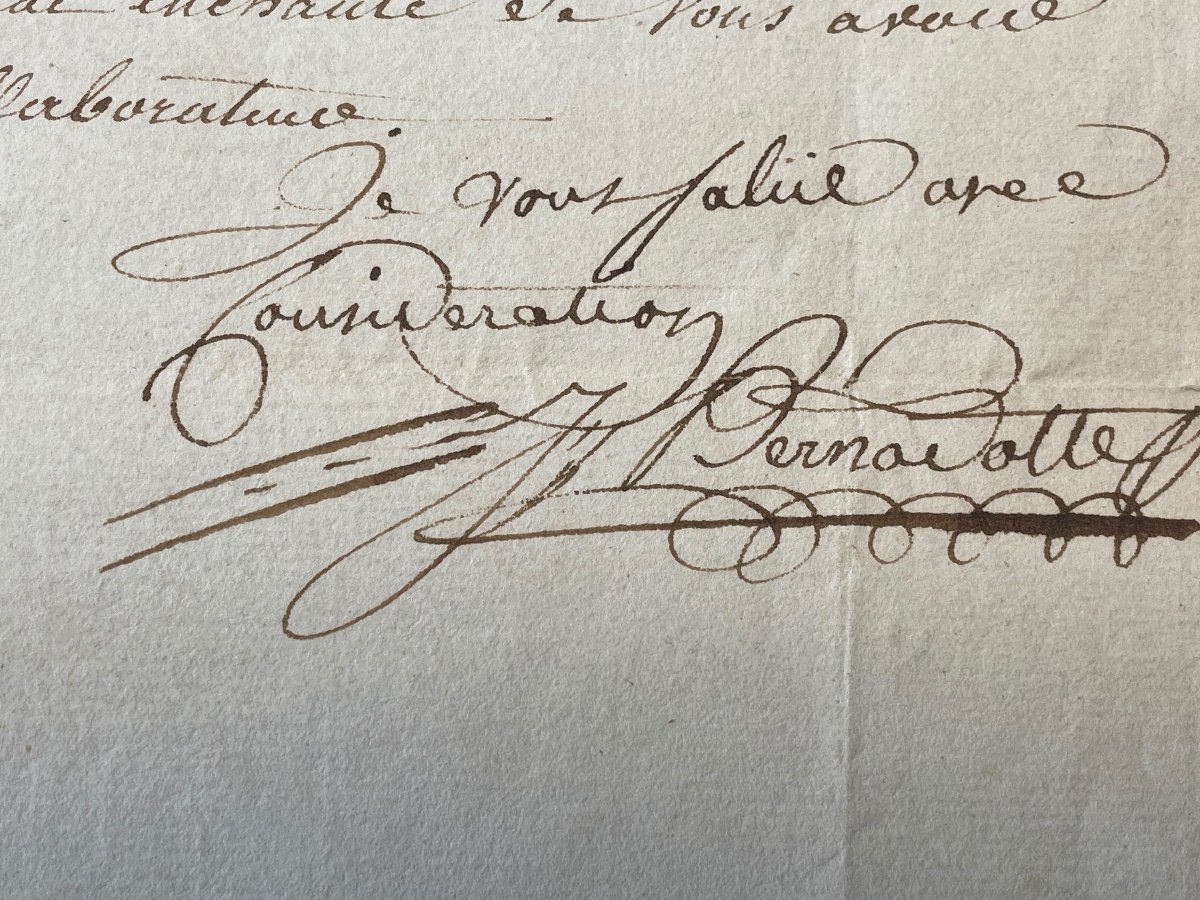 enchanté de vous avoir
llaborateur.
Je vous salüe avec
Consideration
J Bernadotte